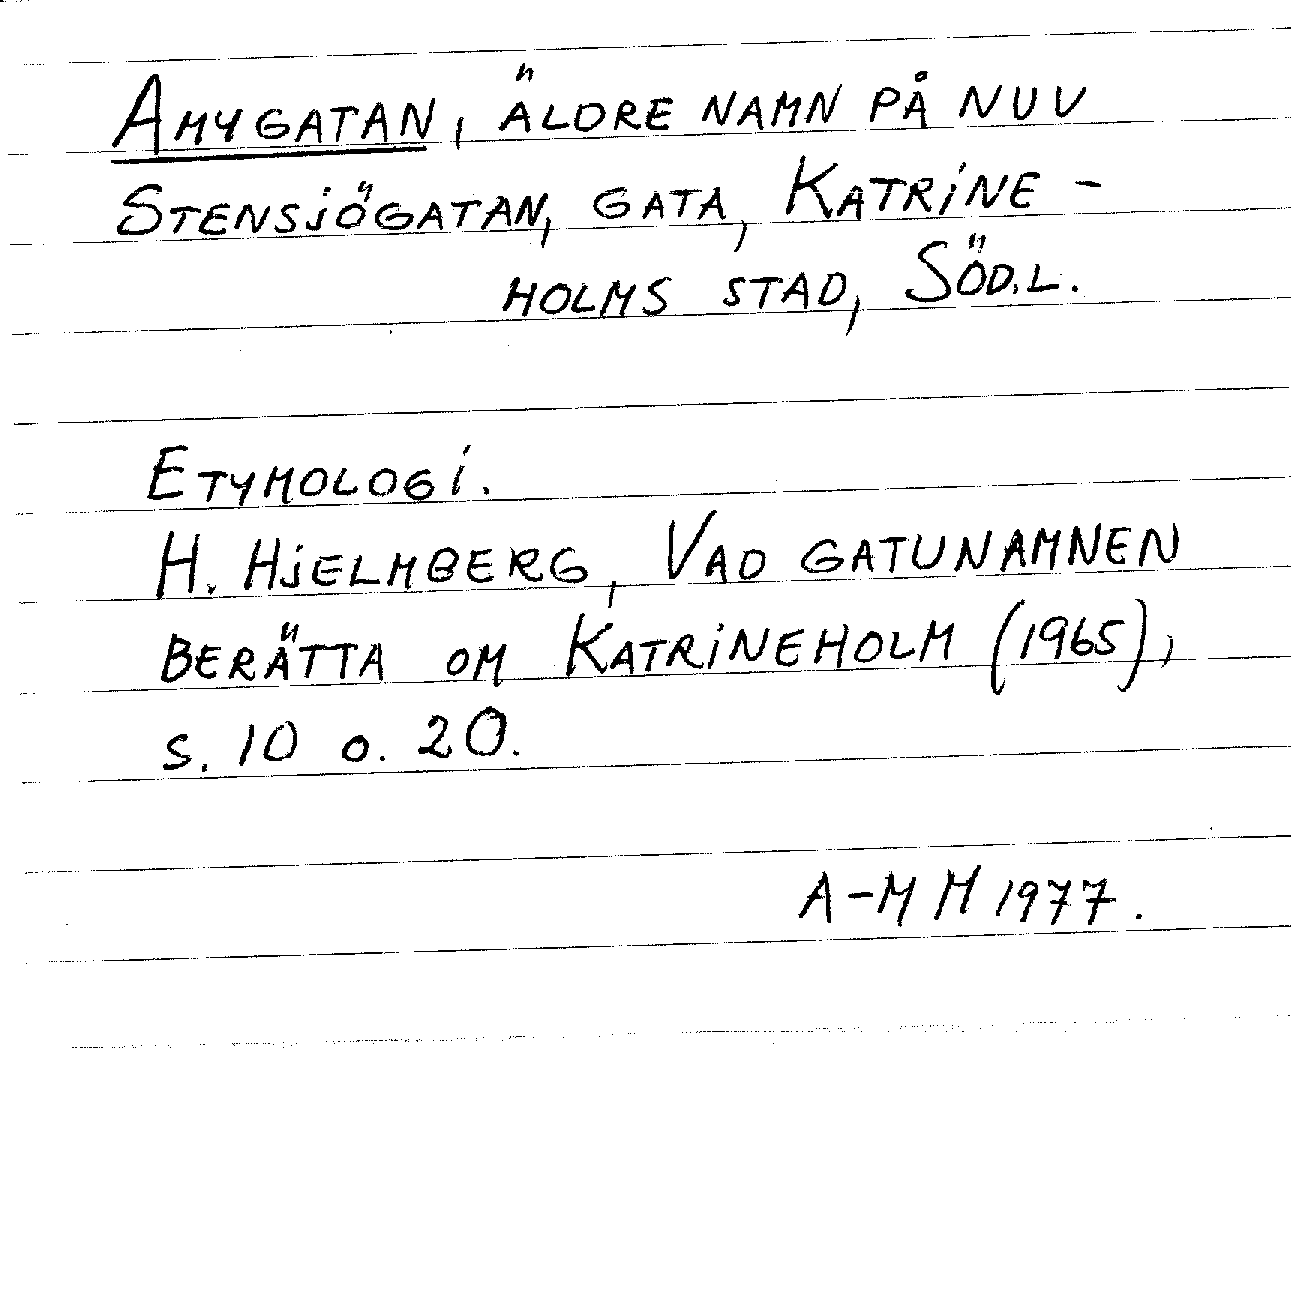 AMYGATAN, ÄLDRE NAMN PÅ NUV
STENSJÖGATAN, GATA, KATRINE-
HOLMS STAD, SÖD.L.
ETYMOLOGI.
H. HJELMBERG, VAD GATUNAMNEN
BERÄTTA OM KATRINEHOLM (1965),
s. 10 o. 20.
A-M M 1977.